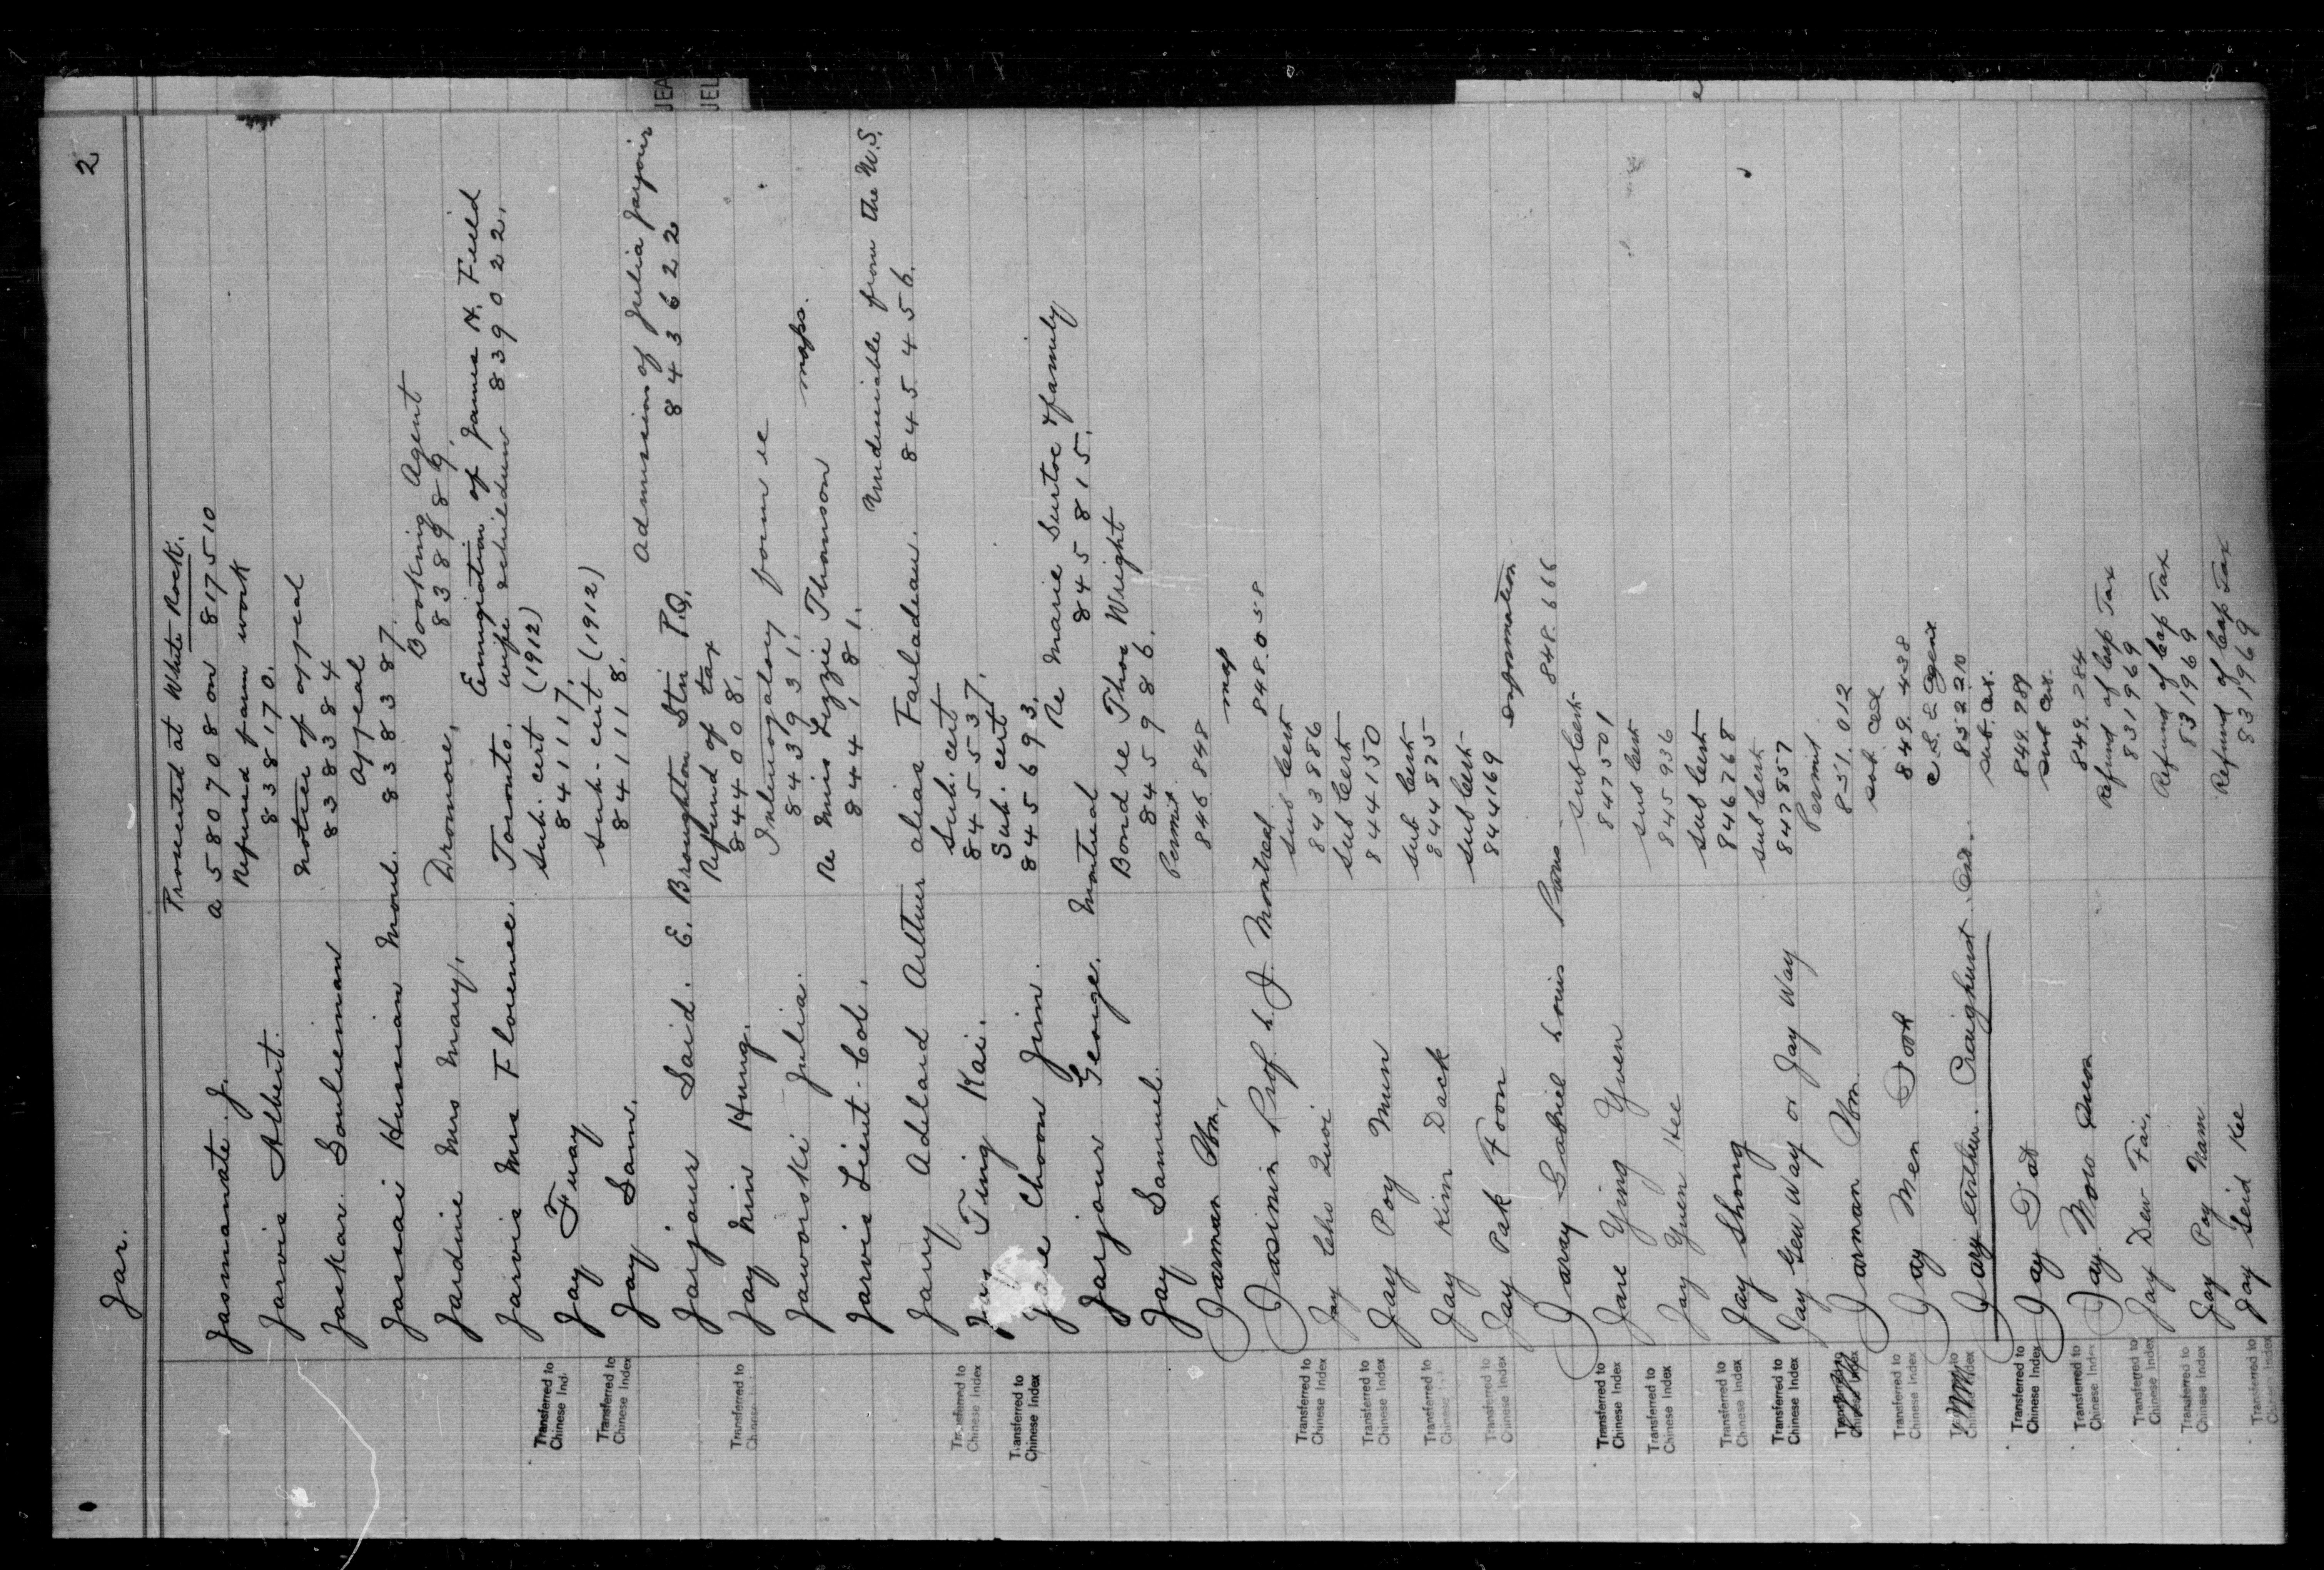 Jar.
2
Prosecuted at White Rock.
Jasmanate J. a 580708 on 817510
Refused farm work
Jarvis Albert. 838170.
Notice of appeal
Jaskar Souleiman 838384
appeal
Jassai Hussian Monl. 838387.
Booking Agent
Jardine Mrs Mary. Dromore, 838989,
Emigration of James H. Field
Jarvis Mrs Florence. Toronto. wife & children 839022.
Sub. cert (1912)
Transferred to Chinese Ind. Jay Fuay 841117.
Sub. cert (1912)
Transferred to Chinese Index Jay Sam. 841118.
Admission of Julia Jarjour
Jarjour Said. E. Broughton Stn P.Q. 843622
Refund of tax
Transferred to Chinese Jay Min Hung. 844008.
Interrogatory form re
Jaworski Julia. 843931.
Re Miss Lizzie Thomson maps.
Jarvis Lieut. Col. 844181.
Undesirable from the U.S.
Jarry Adelard Arthur alias Failadeau. 845456.
Sub. cert
Transferred to Chinese Index Ting Kai. 845537.
Sub. cert
Transferred to Chinese Index Choon Jim. 845693.
Re Marie Surtoc & family
Jarjour George. Montreal 845815.
Bond re Thos Wright
Jay Samuel. 845986.
Permit
Jarman Wm. 846848
map
Jasmin Prof. L. J. Montreal 848.058
Sub Cert
Transferred to Chinese Index Jay Cho Quoi 843886
Sub Cert
Transferred to Chinese Index Jay Poy Mun 844150
Sub Cert
Transferred to Chinese Jay Kim Dack 844875
Sub Cert
Transferred to Chinese Index Jay Pak Foon 844169
information
Jaray Gabriel Louis Paris 848.666
Sub Cert
Transferred to Chinese Index Jane Ying Yuen 847501
Sub Cert
Transferred to Chinese Index Jay Yuen Hee 845936
Sub Cert
Transferred to Chinese Index Jay Shong 846768
Sub Cert
Transferred to Chinese Index Jay Gew Way or Jay Way 847857
Permit
Jarman Wm. 851.012
Sub.
Transferred to Chinese Index Jay Men Sook 849.438
C.S.L. Agent
Jary Arthur. Craighurst Ont. 852210
Sub. Cer.
Transferred to Chinese Index Jay Dat 849.289
Sub Cer.
Transferred to Chinese Index Jay Now 849.284
Refund of Cap Tax
Transferred to Chinese Index Jay Dew Fai. 831969
Refund of Cap Tax
Transferred to Chinese Index Jay Poy Nam 831969
Refund of Cap Tax
Transferred to Chinese Index Jay Seid Kee 831969
JEA
JEL